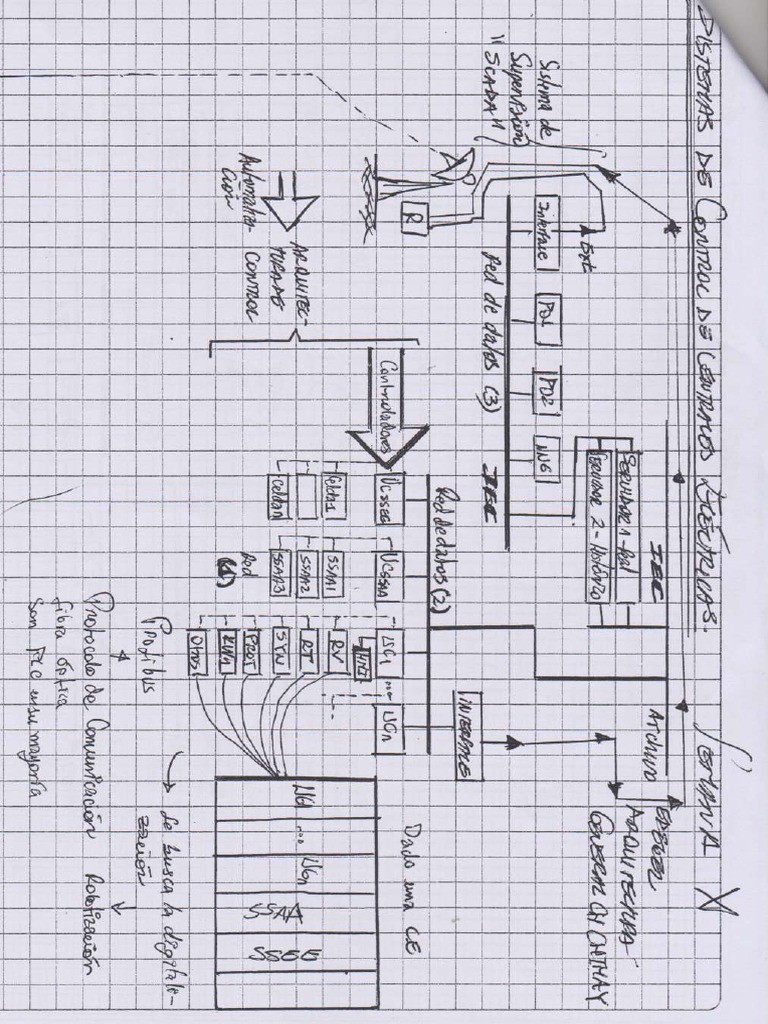 SISTEMAS DE CONTROL DE CENTRALES ELÉCTRICAS.
SEMANA X
Sistema de
Supervisión
"SCADA"
Ext
Interfase
PO1
PO2
ING
Red de datos (3)
IEC
IEC
Servidor 1 - Real
Servidor 2 - Histórico
Archivo
ARQUITECTURA
GENERAL CH CHIMAY
R
Automatiza-
ción
ARQUITEC-
TURA DE
CONTROL
Controladores
Red de datos (2)
INTERFASE
UCSSEE
UCSSAA
UC1
...
UCn
Celda1
Celdan
SSAA1
SSAA2
SSAA3
Red
(1)
HMI
RV
RT
SYN
PROT
Otros
Profibus
Protocolo de Comunicación
fibra óptica
son PLC en su mayoría
Dado una CE
UG1
...
UGn
SSAA
SSEE
Se busca la digitali-
zación
Robotización